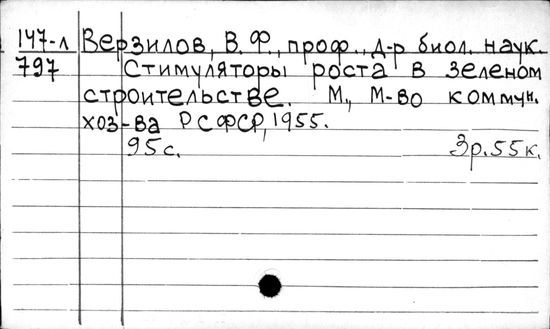 147-л Верзилов, В. Ф., проф., д-р биол. наук.
797 Стимуляторы роста в зеленом
строительстве. М., М-во коммун.
хоз-ва РСФСР, 1955.
95с. 3р.55к.